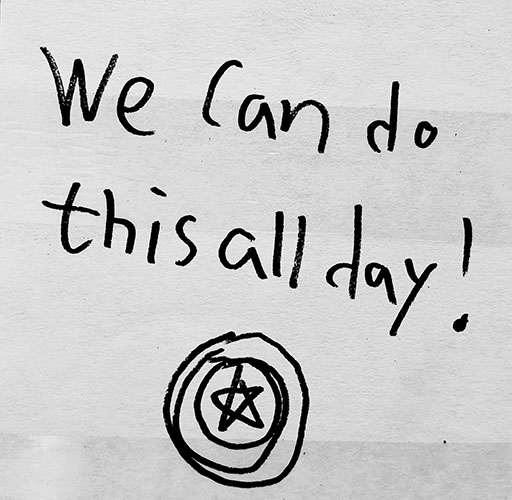 We can do
this all day!